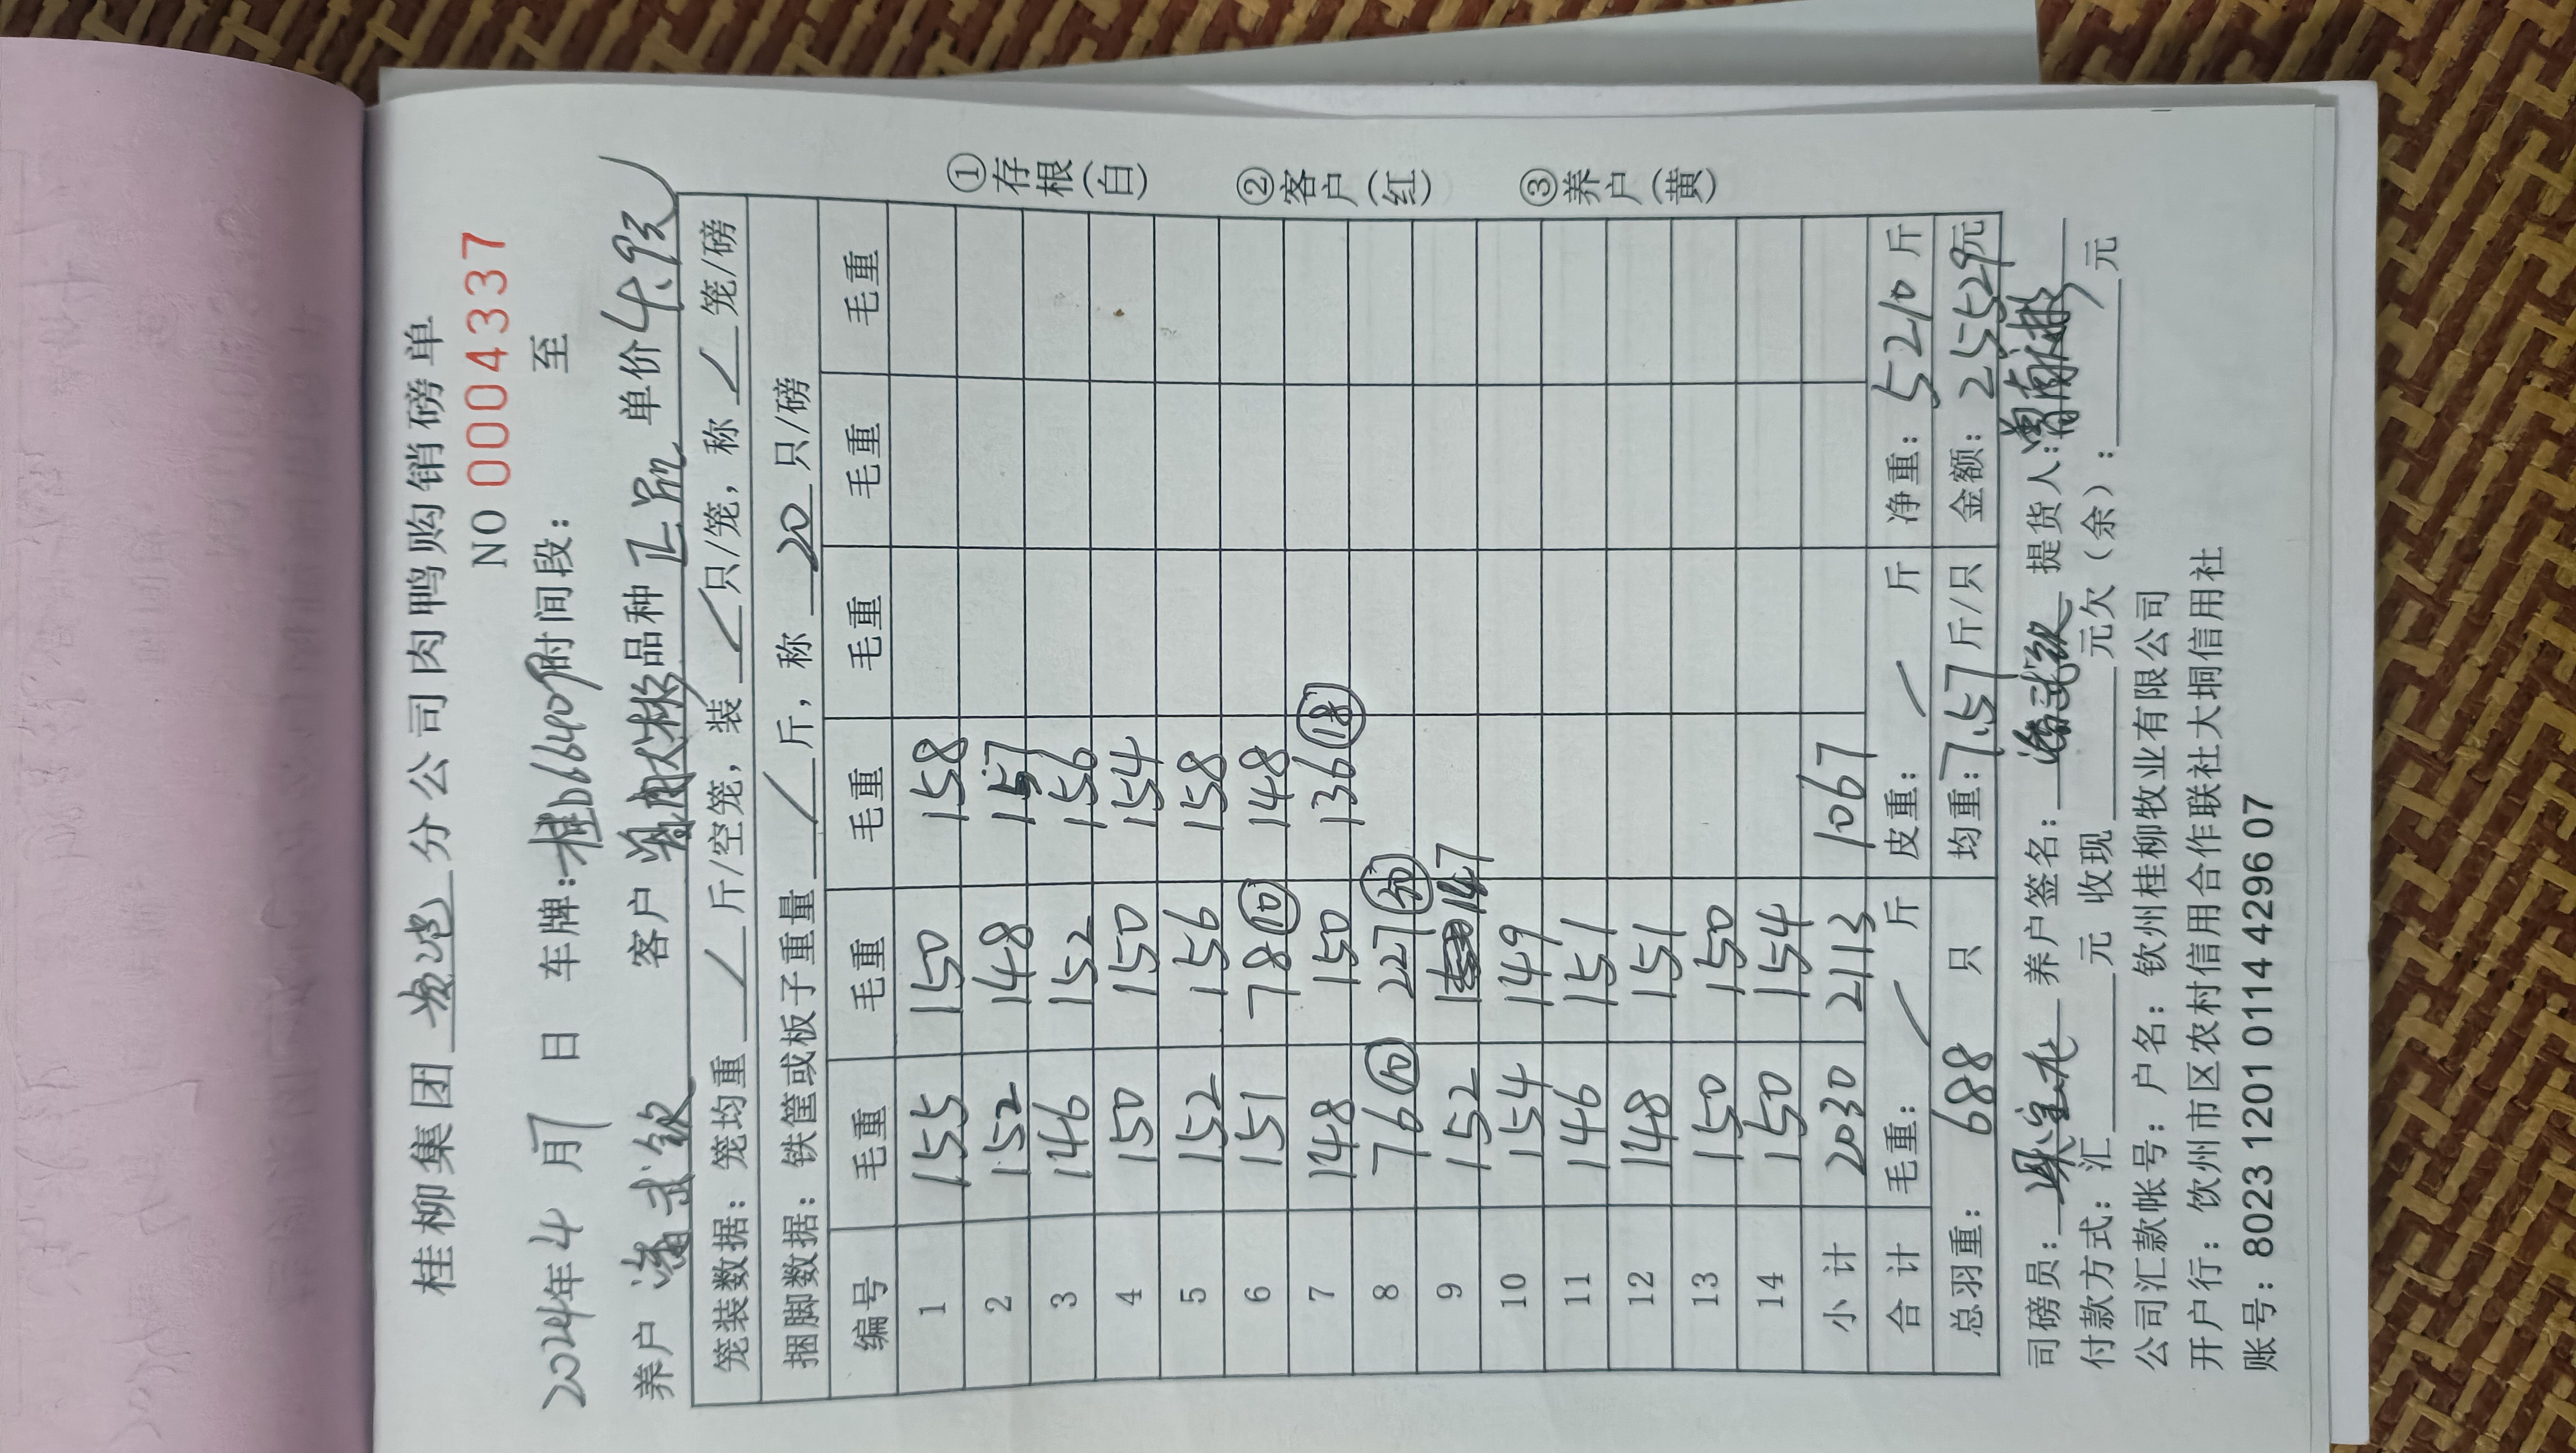 桂柳集团 分公司肉鸭购销磅单
NO 0004337
2024年4月7日 车牌:桂D66409 时间段: 至
养户 潘武钦 客户 品种 正品 单价 4.9元
笼装数据: 笼均重 / 斤/空笼, 装 / 只/笼, 称 / 笼/磅
捆脚数据: 铁筐或板子重量 / 斤, 称 20 只/磅
编号 毛重 毛重 毛重 毛重 毛重 毛重
1 155 150 158
2 152 148 157
3 146 152 156
4 150 150 154
5 152 156 158
6 151 78 ⑩ 148
7 148 150 136 ⑱
8 76 ⑩ 227 ㉚
9 152 147
10 154 149
11 146 151
12 148 151
13 150 150
14 150 154
小计 2030 2113 1067
合计 毛重: / 斤 皮重: / 斤 净重: 5210 斤
总羽重: 688 只 均重: 7.57 斤/只 金额: 25529元
司磅员: 养户签名: 潘武钦 提货人:
付款方式: 汇 元 收现 元欠(余): 元
公司汇款帐号: 户名: 钦州桂柳牧业有限公司
开户行: 饮州市区农村信用合作联社大垌信用社
账号: 8023 1201 0114 4296 07
①存根(白)
②客户(红)
③养户(黄)